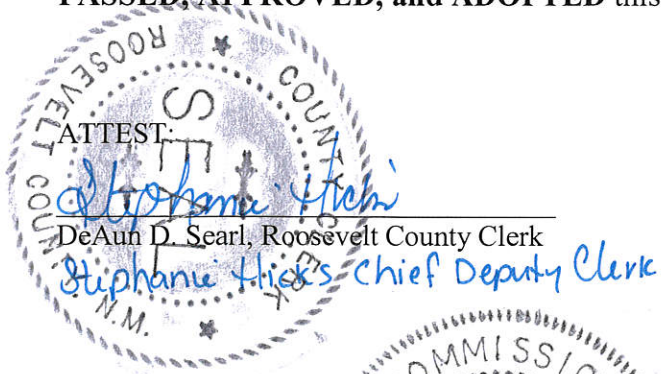 PASSED, APPROVED, and ADOPTED this
ROOSEVELT COUNTY, N.M.
COUNTY CLERK
SEAL
ATTEST:
Stephanie Hicks
DeAun D. Searl, Roosevelt County Clerk
Stephanie Hicks Chief Deputy Clerk
COMMISSIO